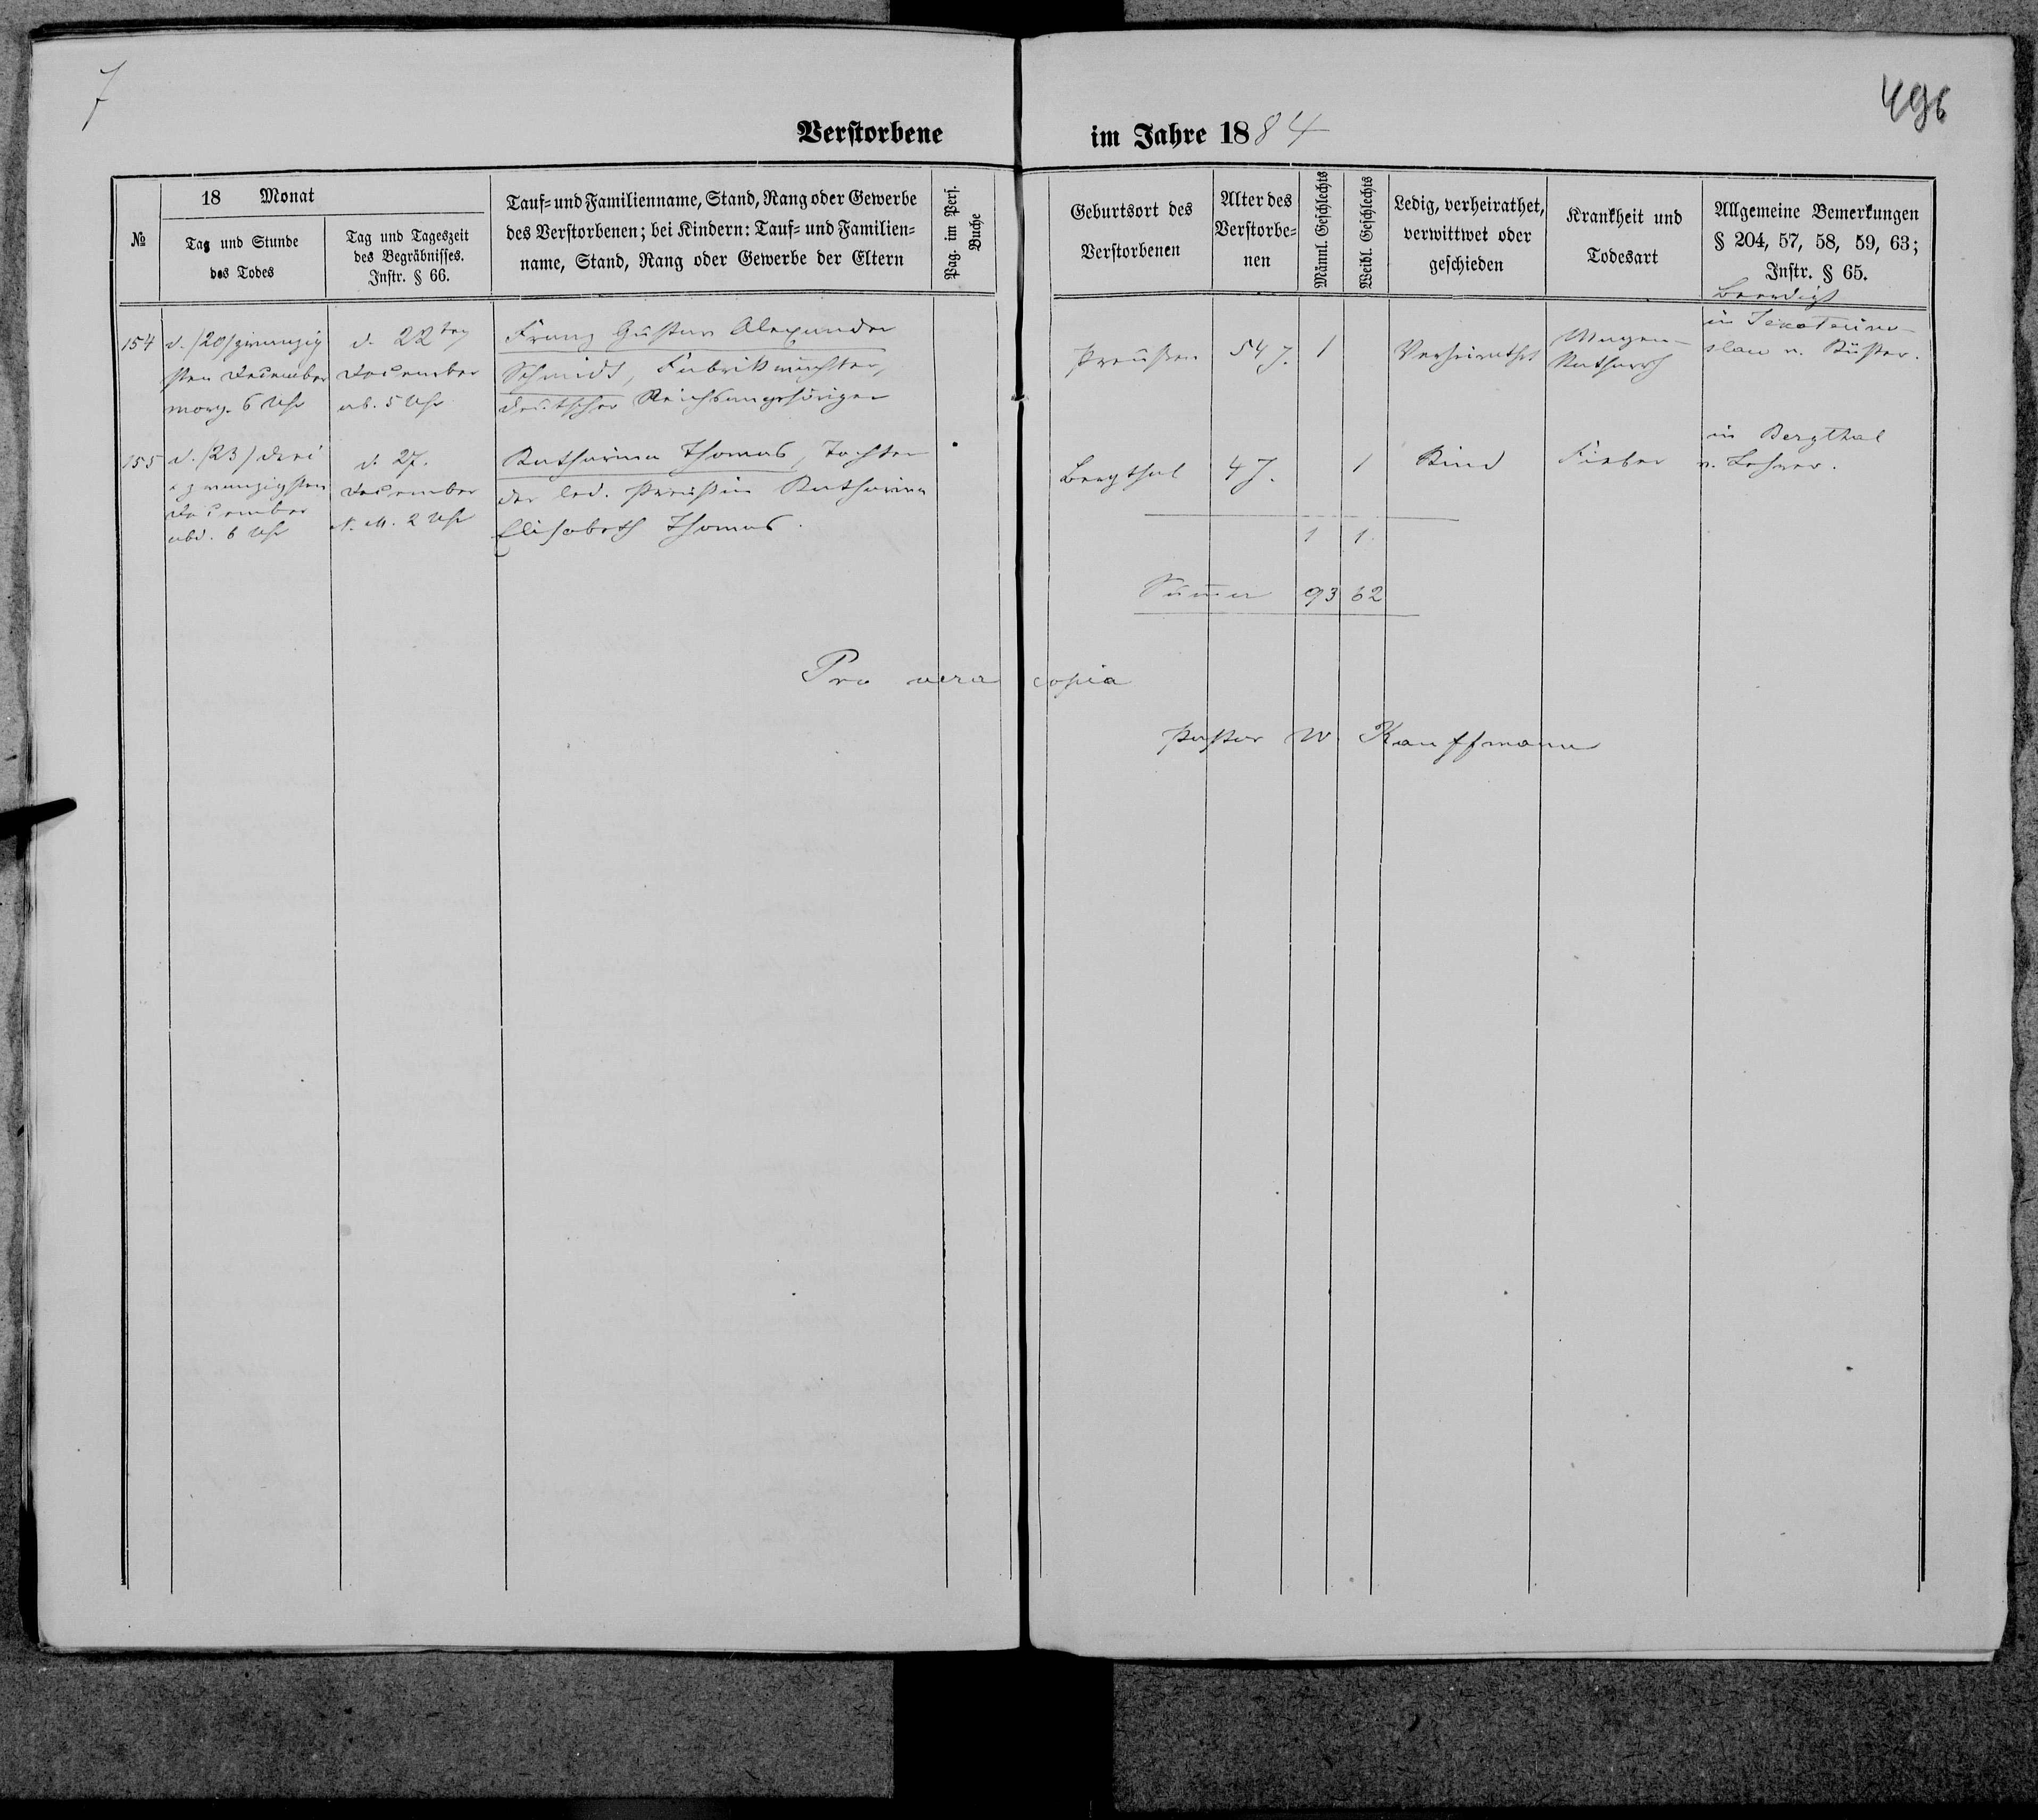 7
496
Verstorbene im Jahre 1884
№
18 Monat
Tag und Stunde
des Todes
Tag und Tageszeit
des Begräbnisses.
Instr. § 66.
Tauf- und Familienname, Stand, Rang oder Gewerbe
des Verstorbenen; bei Kindern: Tauf- und Familien-
name, Stand, Rang oder Gewerbe der Eltern
Pag. im Pers.
Buche
Geburtsort des
Verstorbenen
Alter des
Verstorbe-
nen
Männl. Geschlechts
Weibl. Geschlechts
Ledig, verheirathet,
verwittwet oder
geschieden
Krankheit und
Todesart
Allgemeine Bemerkungen
§ 204, 57, 58, 59, 63;
Instr. § 65.
Beerdigt
154
d. (20) zwanzig
sten December
morg. 6 Uhr
d. 22ten
December
ab. 5 Uhr
Franz Gustav Alexander
Schmidt, Fabrikwächter,
deutscher Reichsangehöriger
Preußen
54 J.
1
Verheirathet
Magen-
Katharrh
in Jekaterino-
slaw v. Küster.
155
d. (23) drei
u zwanzigsten
December
abd. 6 Uhr
d. 27.
December
N. M. 2 Uhr
Katharina Thomas, Tochter
der led. Preußin Katharina
Elisabeth Thomas.
Bergthal
4 J.
1
Kind
Fieber
in Bergthal
v. Lehrer.
1 1
Summa 93 62
Pro vera copia
Pastor W. Kauffmann